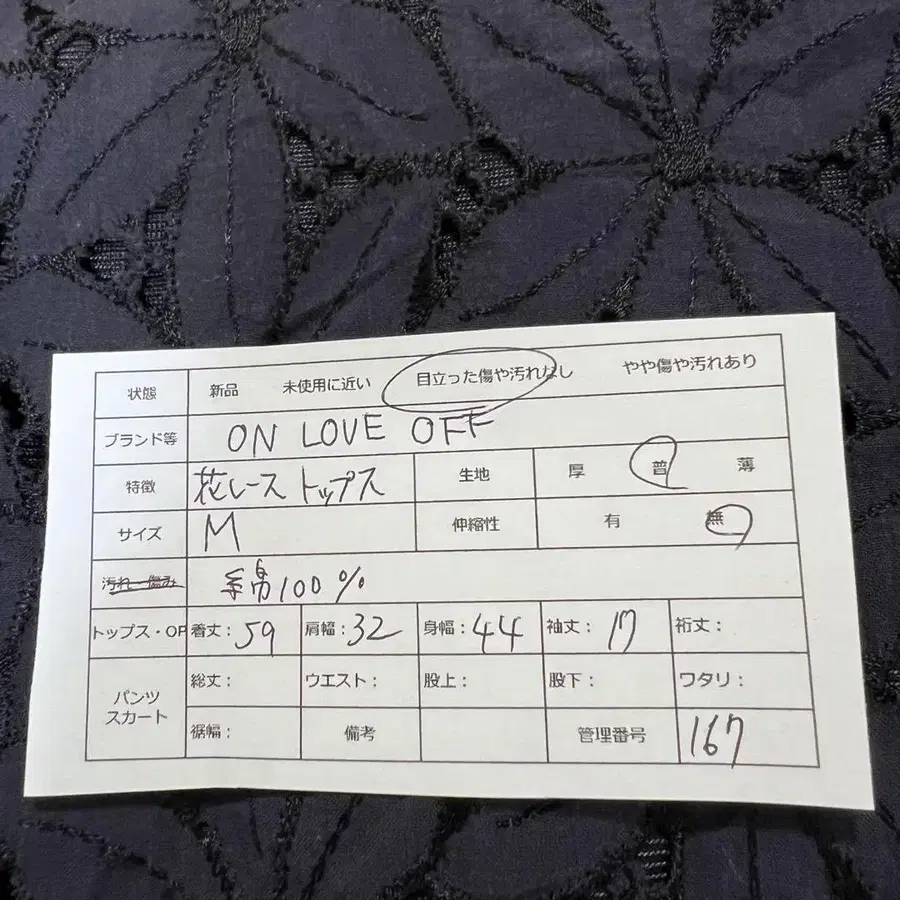 状態 新品 未使用に近い 目立った傷や汚れなし やや傷や汚れあり
ブランド等 ON LOVE OFF
特徴 花レース トップス 生地 厚 普 薄
サイズ M 伸縮性 有 無
汚れ・傷み 綿100%
トップス・OP 着丈：59 肩幅：32 身幅：44 袖丈：17 裄丈：
パンツ スカート 総丈： ウエスト： 股上： 股下： ワタリ：
裾幅： 備考 管理番号 167